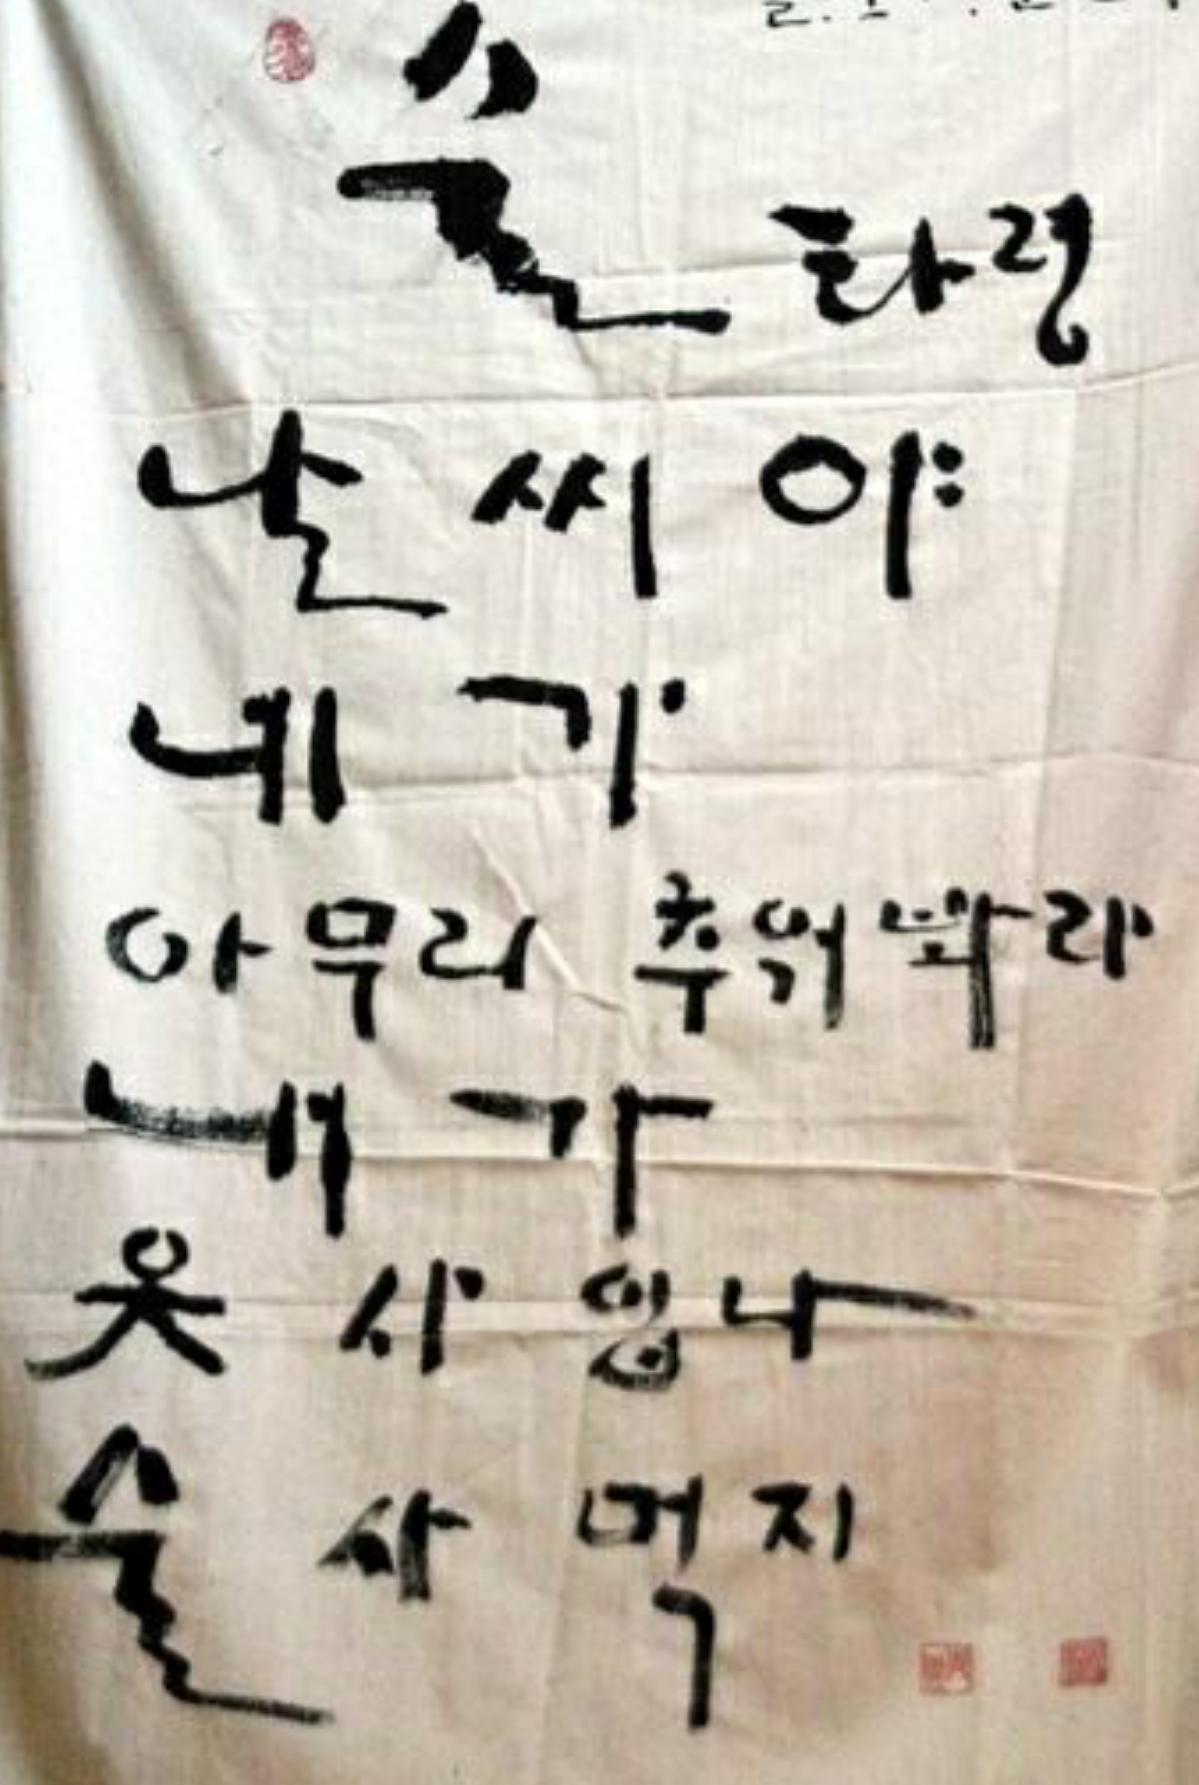 술 타령
날씨야
네가
아무리 추워봐라
내가
옷 사입나
술 사 먹지